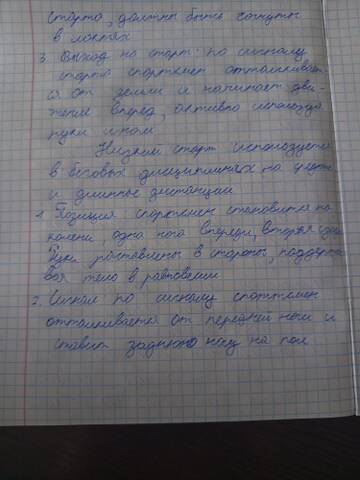 старта, должны быть согнуты
в локтях
3. Выход на старт: по сигналу
старта спортсмен отталкивает-
ся от земли и начинает дви-
жение вперед, активно используя
руки и ноги
Низкий старт используется
в беговых дисциплинах на средние
и длинные дистанции
1. Позиция спортсмен становится на
колени, одна нога впереди, вторая сзади
Руки расставлены в стороны, поддержи
вая тело в равновесии
2. Сигнал по сигналу спортсмен
отталкивается от передней ноги и
ставит заднюю ногу на пол